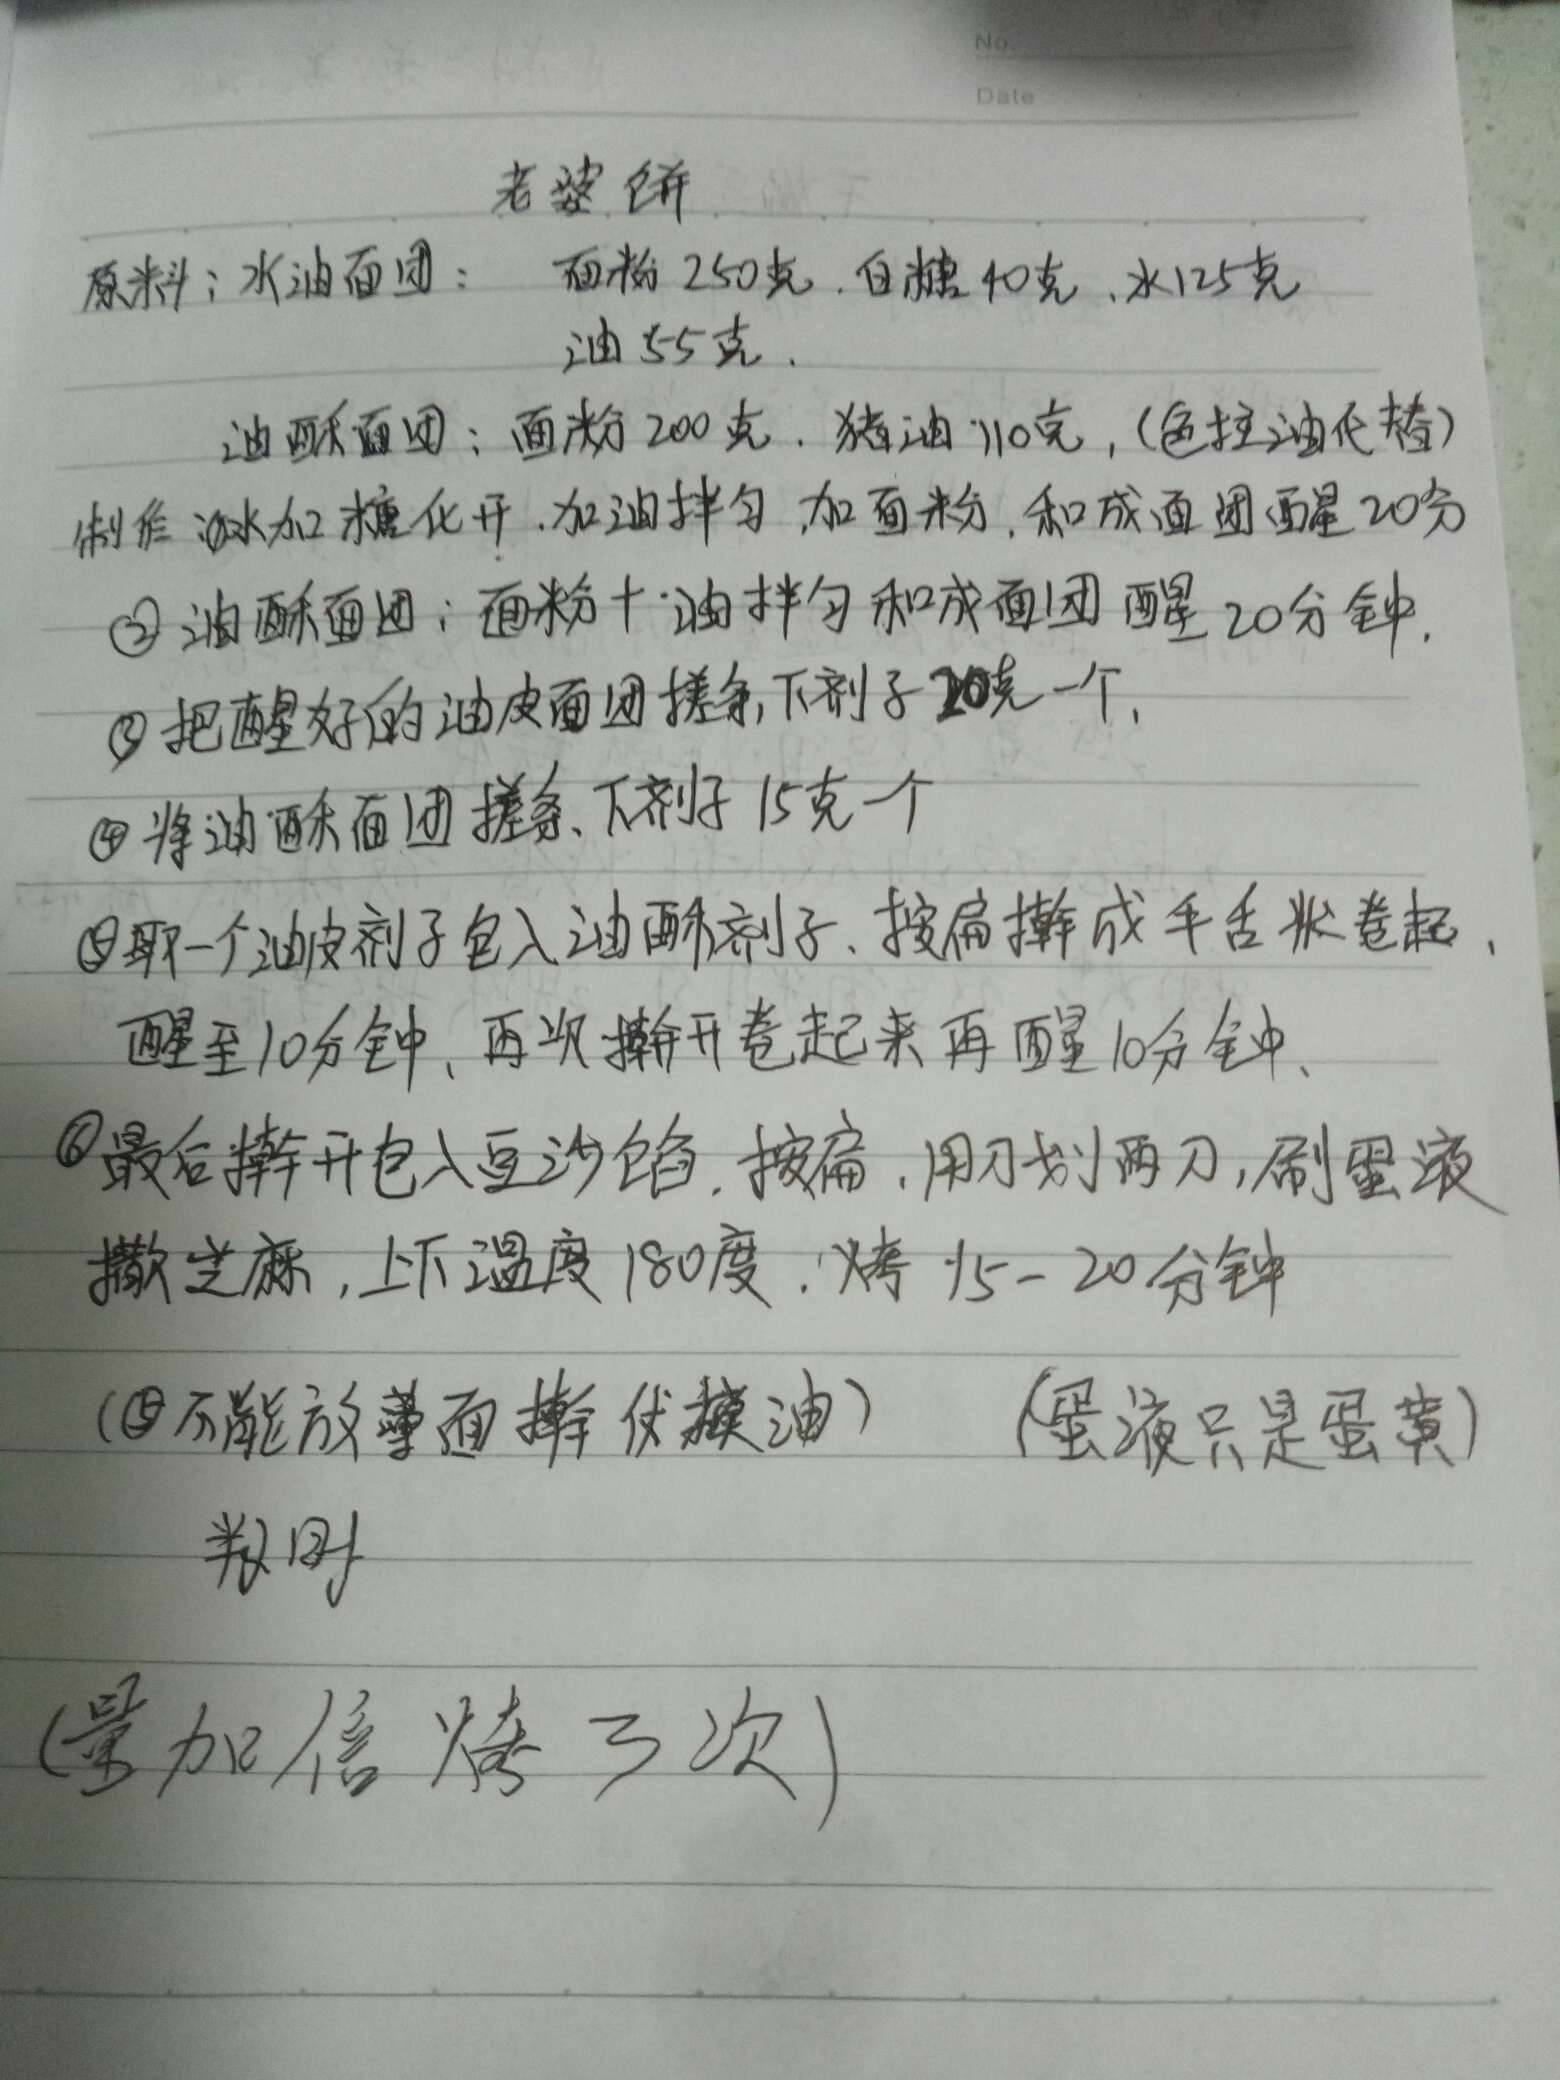 No.
Date
老婆饼
原料：水油面团： 面粉250克、白糖40克、水125克
油55克.
油酥面团：面粉200克、猪油110克，(色拉油代替)
制作：①水加糖化开、加油拌匀、加面粉、和成面团醒20分
②油酥面团：面粉十油拌匀和成面团醒20分钟.
③把醒好的油皮面团搓条，下剂子20克一个，
④将油酥面团搓条、下剂子15克一个
⑤取一个油皮剂子包入油酥剂子、按扁擀成牛舌状卷起、
醒至10分钟、再次擀开卷起来再醒10分钟、
⑥最后擀开包入豆沙馅、按扁、用刀划两刀，刷蛋液
撒芝麻，上下温度180度、烤15-20分钟
(⑤不能放薄面擀 油) (蛋液只是蛋黄)
(量加倍烤了次)